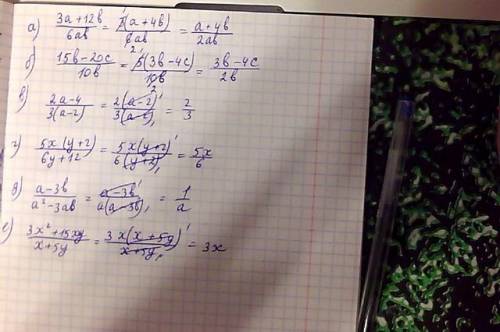 а) (3a+12b)/(6ab) = (3(a+4b))/(6ab) = (a+4b)/(2ab)
б) (15b-20c)/(10b) = (5(3b-4c))/(10b) = (3b-4c)/(2b)
в) (2a-4)/(3(a-2)) = (2(a-2))/(3(a-2)) = 2/3
г) (5x(y+2))/(6y+12) = (5x(y+2))/(6(y+2)) = 5x/6
д) (a-3b)/(a²-3ab) = (a-3b)/(a(a-3b)) = 1/a
е) (3x²+15xy)/(x+5y) = (3x(x+5y))/(x+5y) = 3x